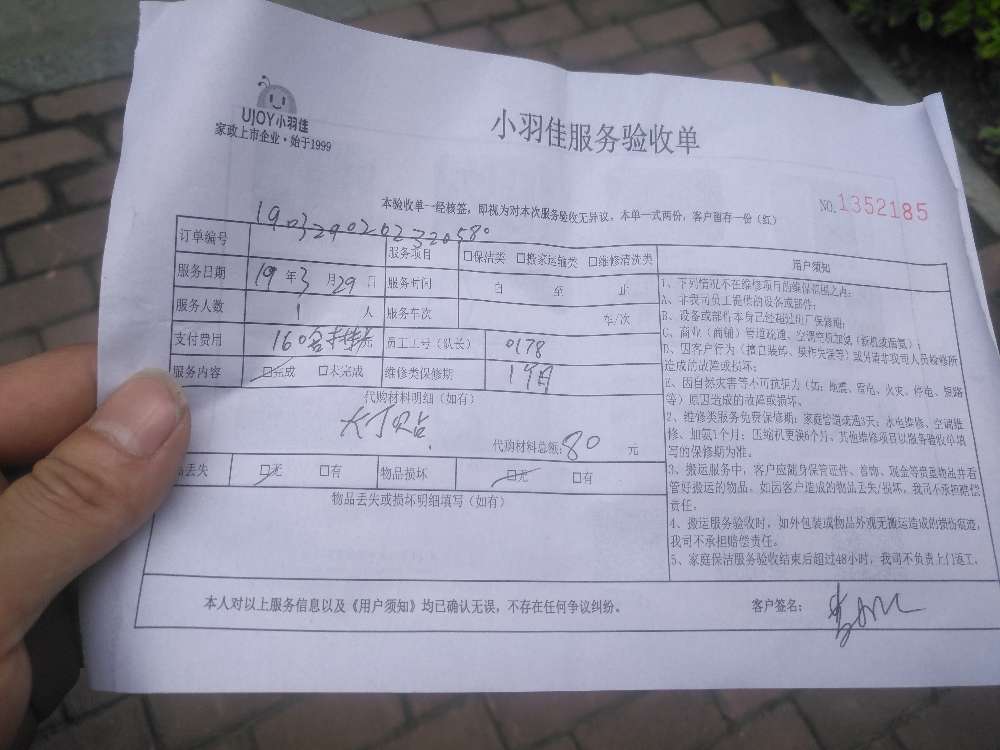 UJOY小羽佳
家政上市企业·始于1999
小羽佳服务验收单
本验收单一经核签，即视为对本次服务验收无异议，本单一式两份，客户留存一份（红）
NO.1352185
订单编号 1903290202320580
服务项目 □保洁类 □搬家运输类 □维修清洗类
用户须知
服务日期 19年3月29日 服务时间 自 至 止
服务人数 1人 服务车次 车/次
支付费用 160 元 员工工号（队长） 0178
服务内容 □完成 □未完成 维修类保修期 1个月
代购材料明细（如有）
代购材料总额：80元
品丢失 □无 □有 物品损坏 □无 □有
物品丢失或损坏明细填写（如有）
1、下列情况不在维修项目的维保范围之内：
A、非我司员工提供的设备或部件；
B、设备或部件本身已经超过出厂保修期；
C、商业（商铺）管道疏通、空调常规加氟（新机或漏氟）；
D、因客户行为（擅自装等）或另请非我司人员检修所
造成的故障或损坏；
E、因自然灾害等不可抗拒力（如：地震、雷电、火灾、停电、短路
等）原因造成的故障或损坏。
2、维修类服务免费保修期：家庭管道疏通3天；水电维修、空调维
修、加氟1个月；压缩机更换6个月，其他维修项目以服务验收单填
写的保修期为准。
3、搬运服务中，客户应随身保管证件、首饰、现金等贵重物品并看
管好搬运的物品，如因客户造成的物品丢失/损坏，我司不承担赔偿
责任。
4、搬运服务验收时，如外包装或物品外观无搬运造成的损伤痕迹，
我司不承担赔偿责任。
5、家庭保洁服务验收结束后超过48小时，我司不负责上门返工。
本人对以上服务信息以及《用户须知》均已确认无误，不存在任何争议纠纷。
客户签名：